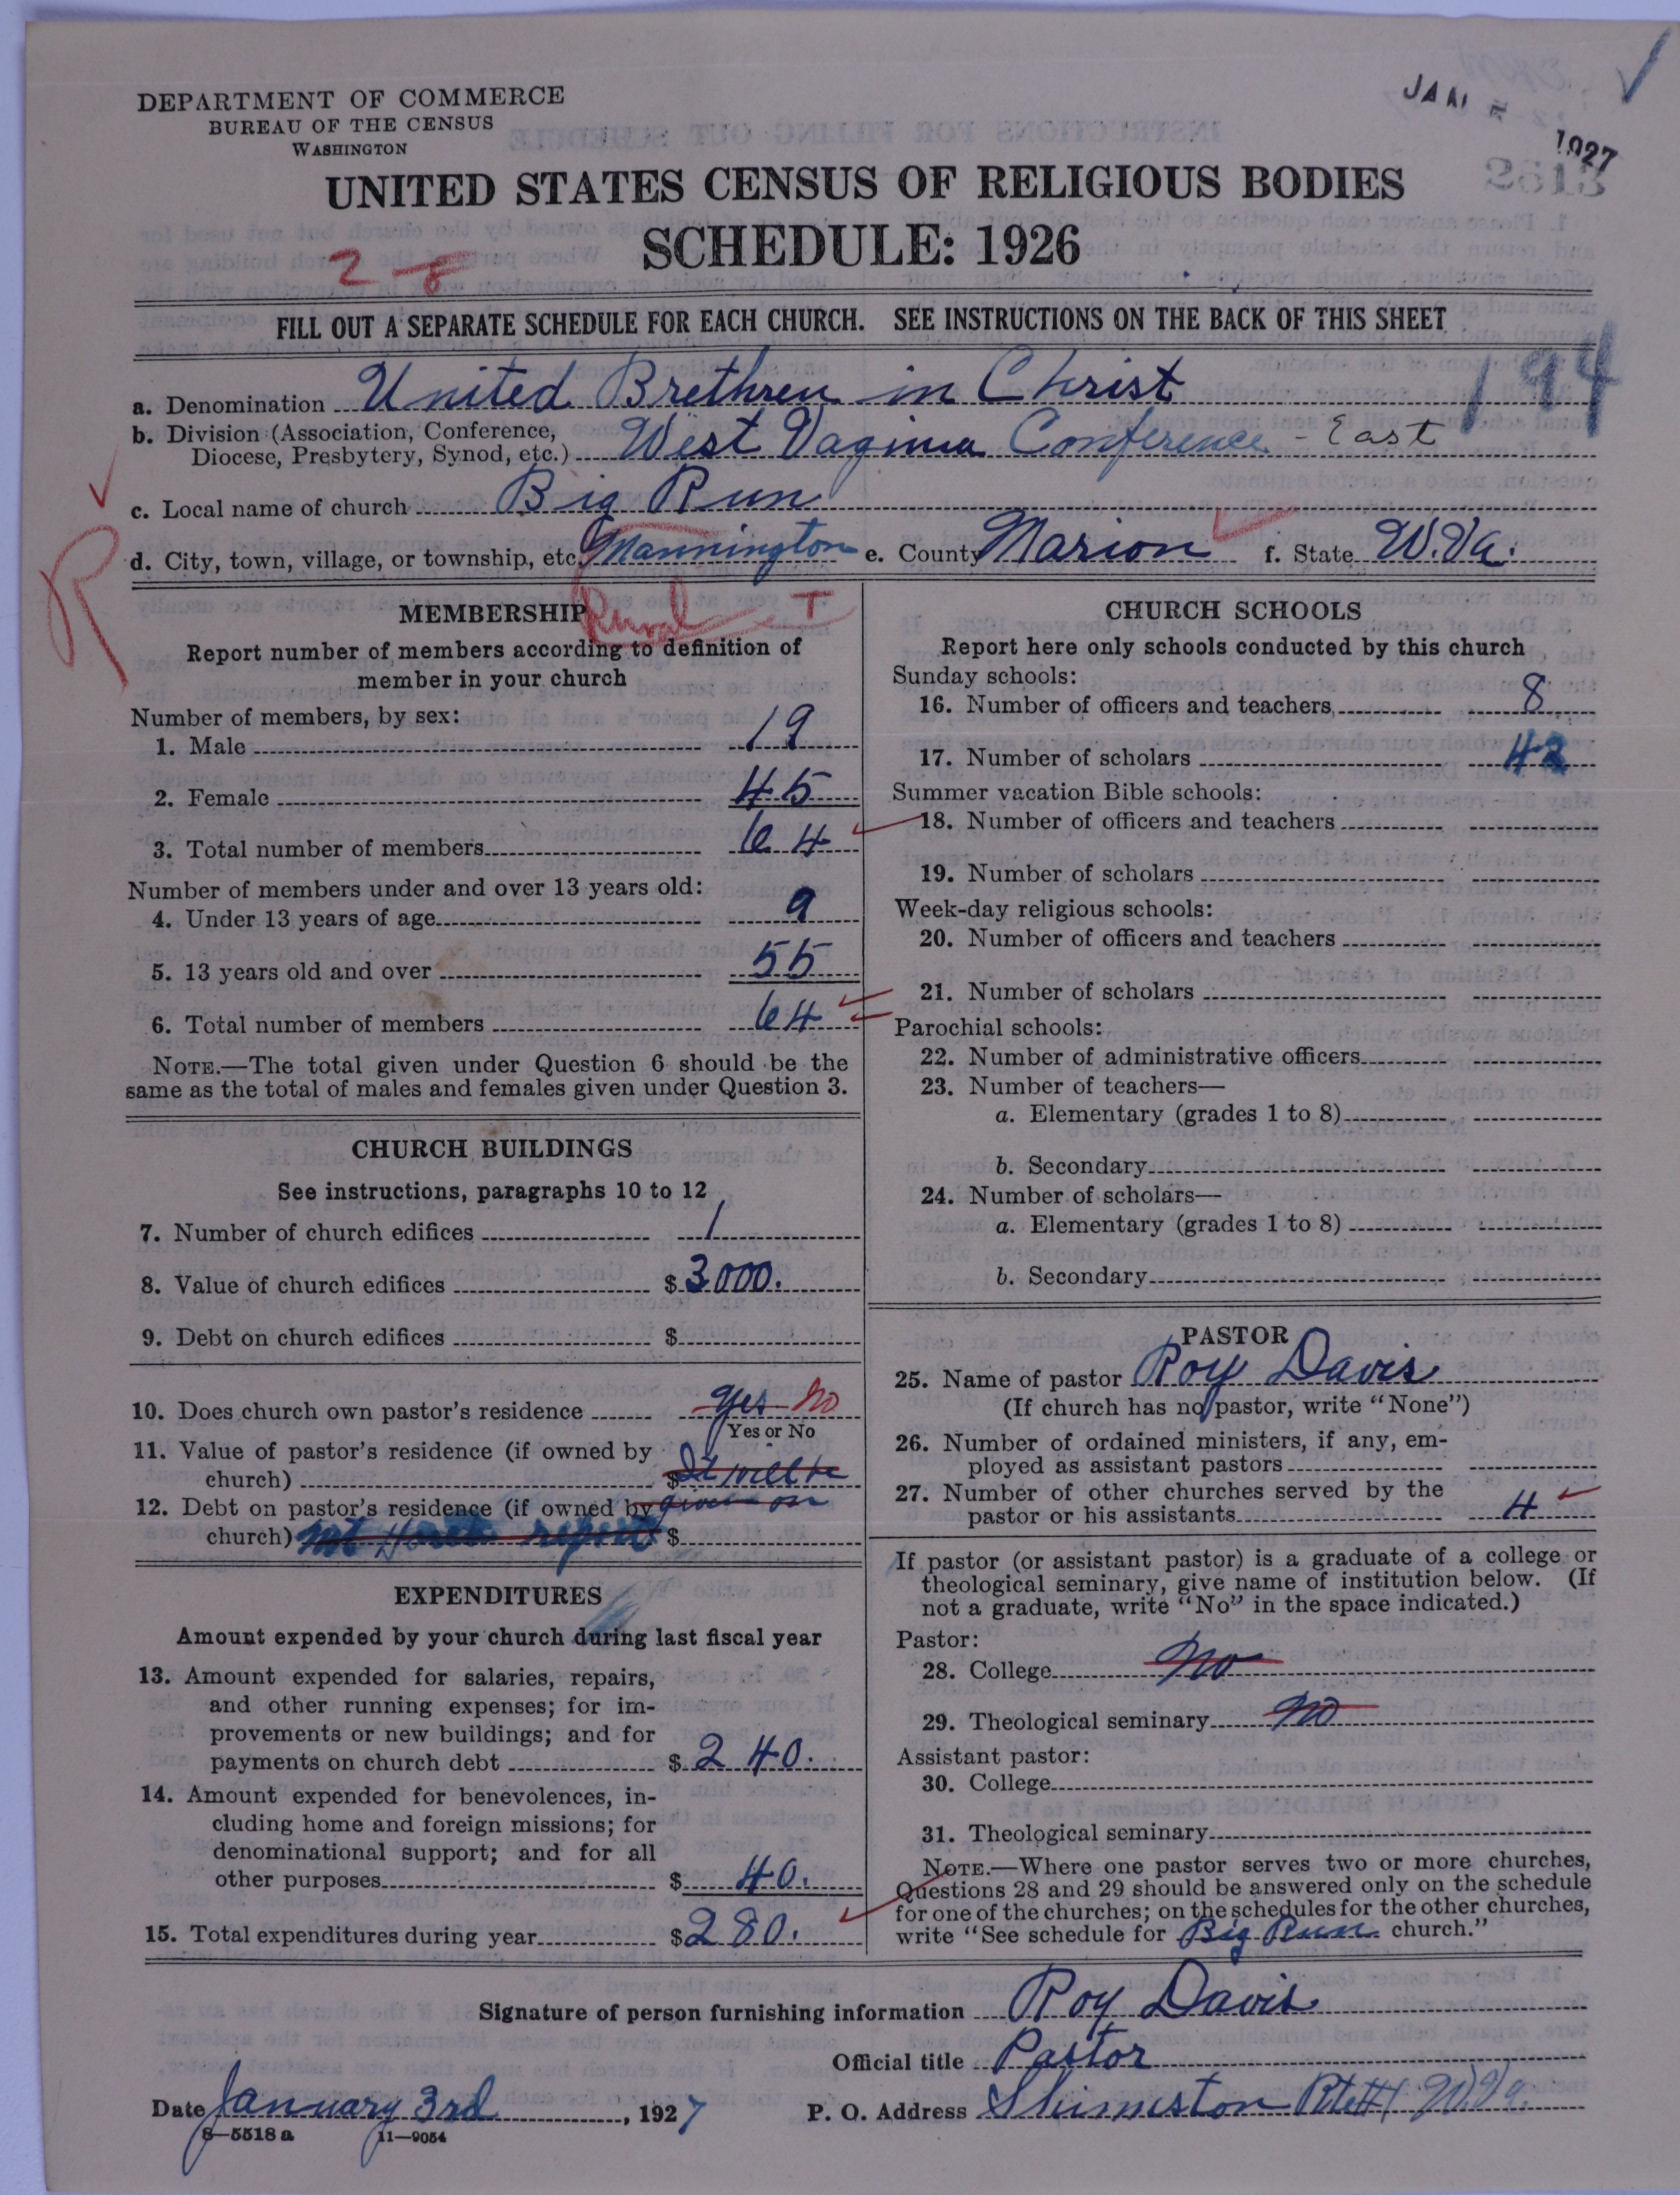 DEPARTMENT OF COMMERCE
BUREAU OF THE CENSUS
WASHINGTON
JAN 1927
UNITED STATES CENSUS OF RELIGIOUS BODIES
SCHEDULE: 1926
2-8
FILL OUT A SEPARATE SCHEDULE FOR EACH CHURCH. SEE INSTRUCTIONS ON THE BACK OF THIS SHEET
194
a. Denomination United Brethren in Christ
b. Division (Association, Conference,
Diocese, Presbytery, Synod, etc.) West Vaginia Conference - East
c. Local name of church Big Run
R
d. City, town, village, or township, etc. Mannington e. County Marion f. State W.Va.
Rural T
MEMBERSHIP
Report number of members according to definition of
member in your church
Number of members, by sex:
1. Male 19
2. Female 45
3. Total number of members 64
Number of members under and over 13 years old:
4. Under 13 years of age 9
5. 13 years old and over 55
6. Total number of members 64
NOTE.—The total given under Question 6 should be the
same as the total of males and females given under Question 3.
CHURCH BUILDINGS
See instructions, paragraphs 10 to 12
7. Number of church edifices 1
8. Value of church edifices $3000.
9. Debt on church edifices $
10. Does church own pastor's residence Yes No
Yes or No
11. Value of pastor's residence (if owned by
church) $ It will be
12. Debt on pastor's residence (if owned by given on
church) Mt report $
EXPENDITURES
Amount expended by your church during last fiscal year
13. Amount expended for salaries, repairs,
and other running expenses; for im-
provements or new buildings; and for
payments on church debt $240.
14. Amount expended for benevolences, in-
cluding home and foreign missions; for
denominational support; and for all
other purposes $40.
15. Total expenditures during year $280.
CHURCH SCHOOLS
Report here only schools conducted by this church
Sunday schools:
16. Number of officers and teachers 8
17. Number of scholars 42
Summer vacation Bible schools:
18. Number of officers and teachers
19. Number of scholars
Week-day religious schools:
20. Number of officers and teachers
21. Number of scholars
Parochial schools:
22. Number of administrative officers
23. Number of teachers—
a. Elementary (grades 1 to 8)
b. Secondary
24. Number of scholars—
a. Elementary (grades 1 to 8)
b. Secondary
PASTOR
25. Name of pastor Roy Davis
(If church has no pastor, write "None")
26. Number of ordained ministers, if any, em-
ployed as assistant pastors
27. Number of other churches served by the
pastor or his assistants 4
If pastor (or assistant pastor) is a graduate of a college or
theological seminary, give name of institution below. (If
not a graduate, write "No" in the space indicated.)
Pastor:
28. College No
29. Theological seminary No
Assistant pastor:
30. College
31. Theological seminary
NOTE.—Where one pastor serves two or more churches,
Questions 28 and 29 should be answered only on the schedule
for one of the churches; on the schedules for the other churches,
write "See schedule for Big Run church."
Signature of person furnishing information Roy Davis
Official title Pastor
Date January 3rd, 1927 P. O. Address W.Va.
8—5518 a 11—9054